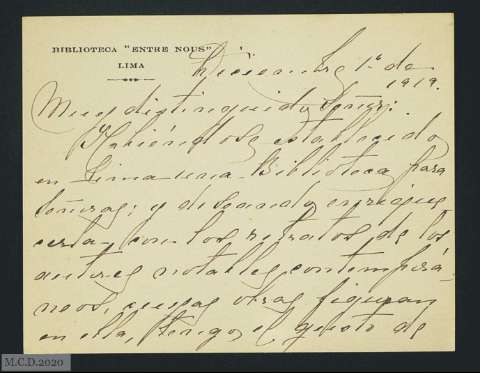 BIBLIOTECA "ENTRE NOUS"
LIMA
Diciembre 1º de
1919.
Muy distinguido Señor:
Habiéndose establecido
en Lima una Biblioteca para
señoras; y deseando enrique-
cerla con los retratos de los
autores notables contemporá-
neos, cuyas obras figuran
en ella, tengo el gusto de
M.C.D.2020